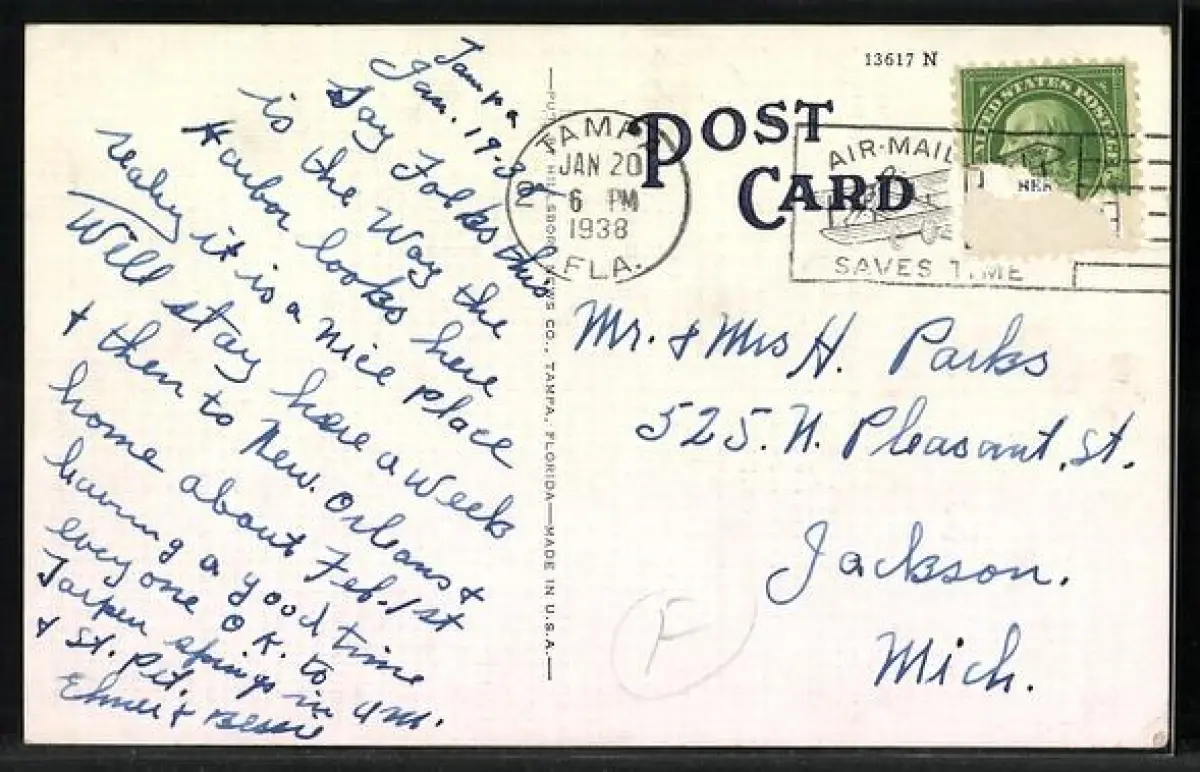 Tampa
Jan. 19-38
Say Folks this
is the Way the
Harbor looks here
realey it is a nice place
Will stay here a week
& then to New. Orleans &
home about Feb. 1st
having a good time
everyone O.K. to
Tarpen springs in
& St. Pet.
& Bessie
13617 N
POST
CARD
TAMPA
JAN 20
6 PM
1938
FLA.
AIR-MAIL
SAVES TIME
UNITED STATES POSTAGE
Mr. & Mrs H. Parks
525. N. Pleasant. St.
Jackson.
Mich.
NEWS CO., TAMPA, FLORIDA—MADE IN U.S.A.
F